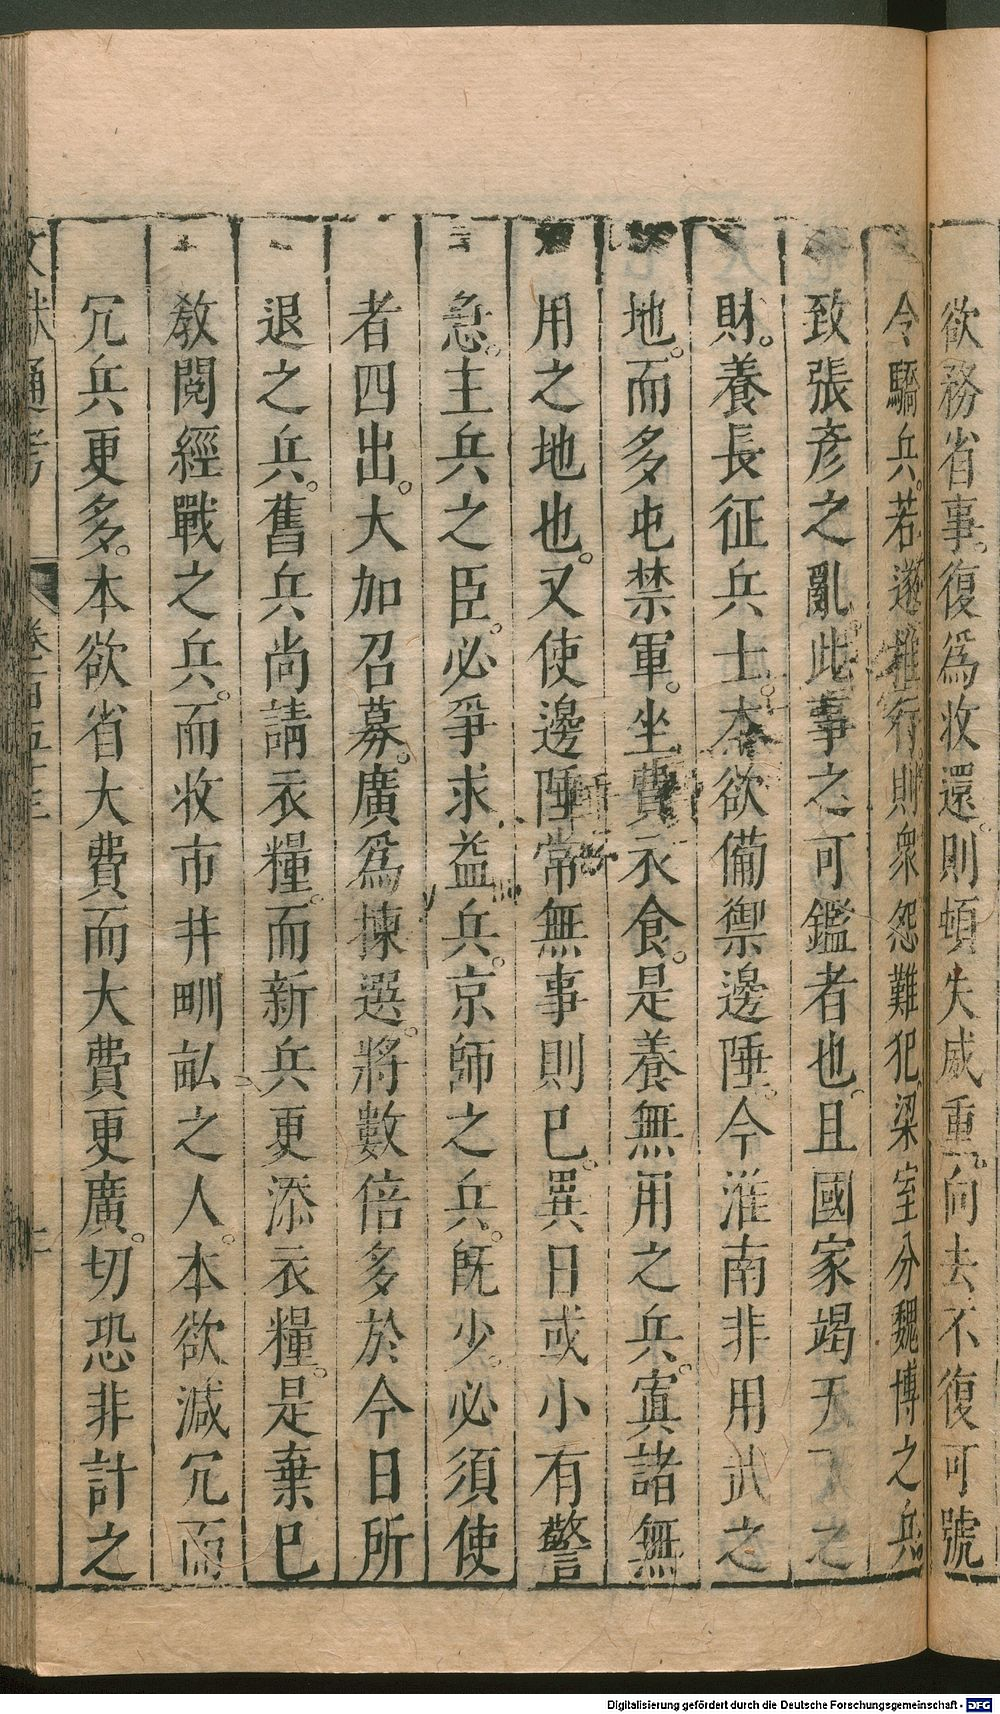 欲務省事。復為收還。則頓失威重。向去不復可號
令驕兵。若遂推行則衆怨難犯。梁室分魏博之兵
致張彥之亂。此事之可鑑者也。且國家竭天下之
財。養長征兵士。本欲備禦邊陲。今淮南非用武之
地。而多屯禁軍。坐費衣食。是養無用之兵。寘諸無
用之地也。又使邊陲常無事則已。異日或小有警
急。主兵之臣。必爭求益兵。京師之兵。旣少。必須使
者四出。大加召募。廣為揀選。將數倍多於今日所
退之兵。舊兵尚請衣糧。而新兵更添衣糧。是棄已
敎閱經戰之兵。而收市井畎畝之人。本欲減冗而
冗兵更多。本欲省大費而大費更廣。切恐非計之
文獻通考 卷一百五十三
Digitalisierung gefördert durch die Deutsche Forschungsgemeinschaft - DFG